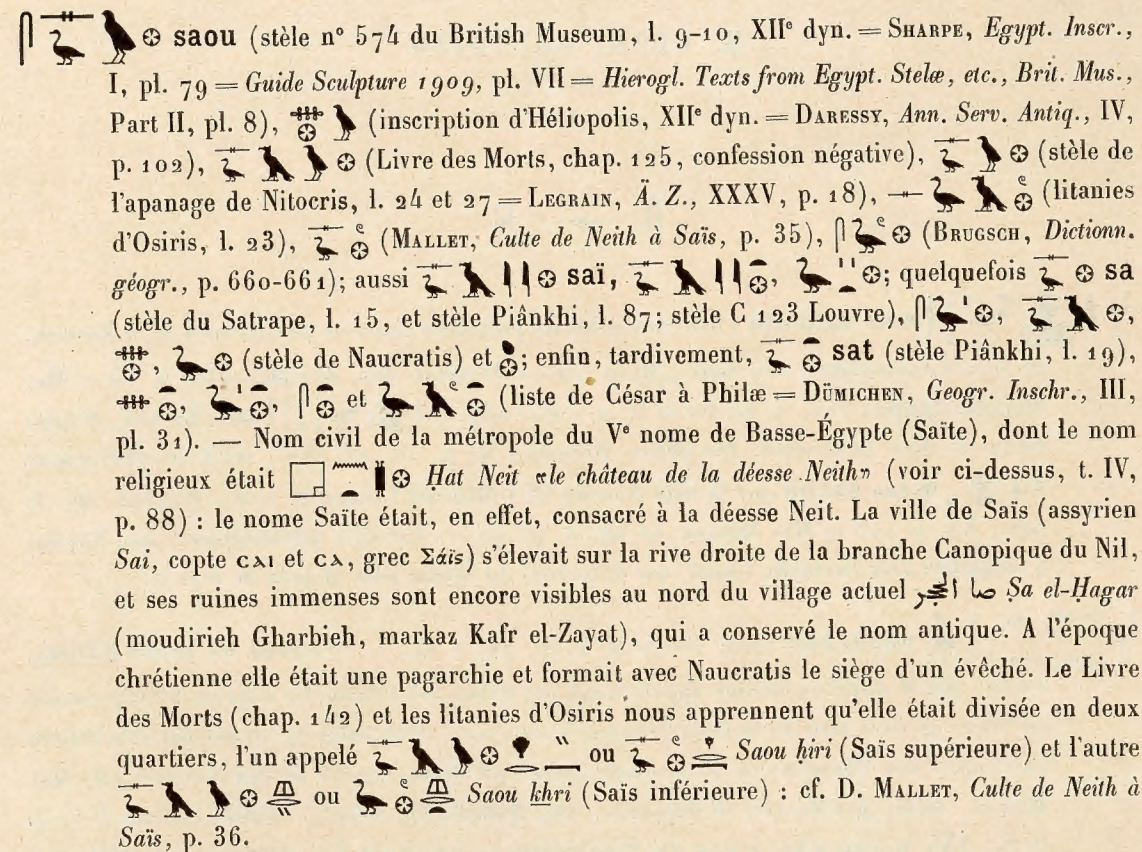 saou (stèle n° 574 du British Museum, l. 9-10, XIIᵉ dyn. = SHARPE, Egypt. Inscr.,
I, pl. 79 = Guide Sculpture 1909, pl. VII = Hierogl. Texts from Egypt. Stelæ, etc., Brit. Mus.,
Part II, pl. 8), (inscription d'Héliopolis, XIIᵉ dyn. = DARESSY, Ann. Serv. Antiq., IV,
p. 102), (Livre des Morts, chap. 125, confession négative), (stèle de
l'apanage de Nitocris, l. 24 et 27 = LEGRAIN, Ä. Z., XXXV, p. 18), (litanies
d'Osiris, l. 23), (MALLET, Culte de Neith à Saïs, p. 35), (BRUGSCH, Dictionn.
géogr., p. 660-661); aussi saï, , ; quelquefois sa
(stèle du Satrape, l. 15, et stèle Piânkhi, l. 87; stèle C 123 Louvre), , ,
, (stèle de Naucratis) et ; enfin, tardivement, sat (stèle Piânkhi, l. 19),
, , et (liste de César à Philæ = DÜMICHEN, Geogr. Inschr., III,
pl. 31). — Nom civil de la métropole du Vᵉ nome de Basse-Égypte (Saïte), dont le nom
religieux était Ḥat Neit «le château de la déesse Neith» (voir ci-dessus, t. IV,
p. 88) : le nome Saïte était, en effet, consacré à la déesse Neit. La ville de Saïs (assyrien
Sai, copte ⲥⲁⲓ et ⲥⲁ, grec Σάϊς) s'élevait sur la rive droite de la branche Canopique du Nil,
et ses ruines immenses sont encore visibles au nord du village actuel صا الحجر Ṣa el-Ḥagar
(moudirieh Gharbieh, markaz Kafr el-Zayat), qui a conservé le nom antique. A l'époque
chrétienne elle était une pagarchie et formait avec Naucratis le siège d'un évêché. Le Livre
des Morts (chap. 142) et les litanies d'Osiris nous apprennent qu'elle était divisée en deux
quartiers, l'un appelé ou Saou ḥiri (Saïs supérieure) et l'autre
ou Saou khri (Saïs inférieure) : cf. D. MALLET, Culte de Neith à
Saïs, p. 36.